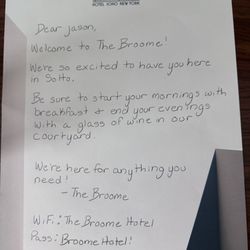 HOTEL SOHO NEW YORK
Dear Jason,
Welcome to The Broome!
We're so excited to have you here
in Sotto.
Be sure to start your mornings with
breakfast & end your evenings
with a glass of wine in our
courtyard.
We're here for anything you
need!
- The Broome
WiFi: The Broome Hotel
Pass: Broome Hotel!